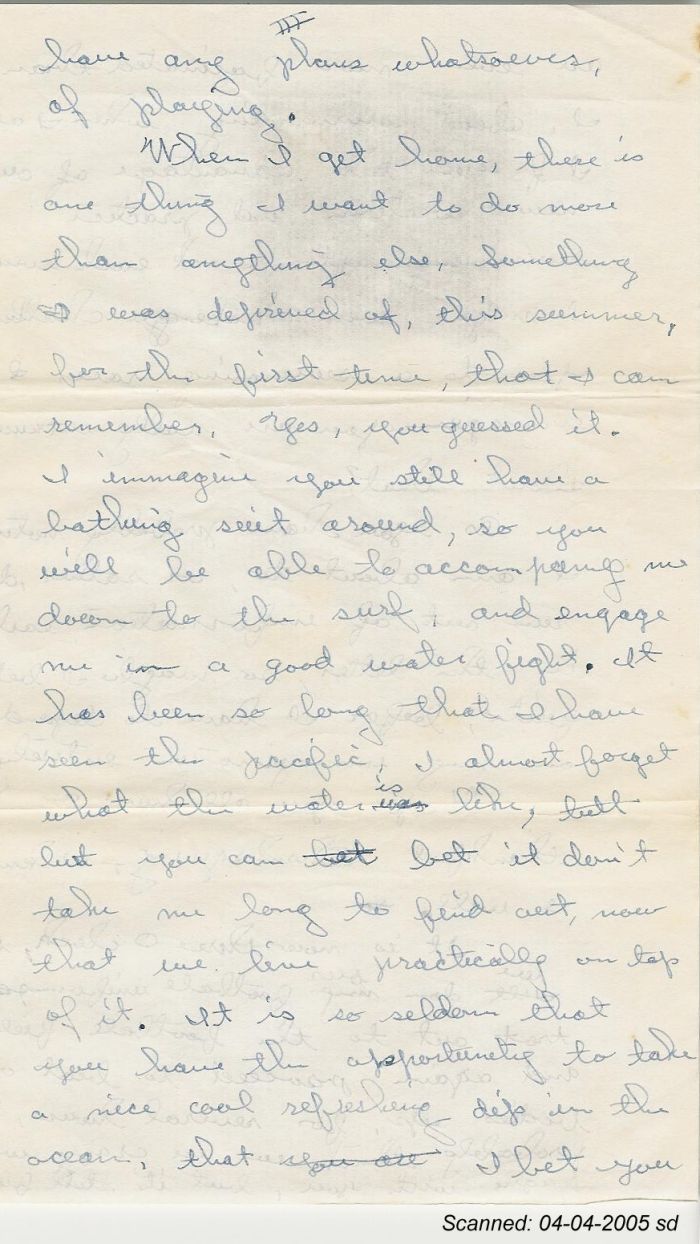 III
have any plans whatsoever,
of playing.
When I get home, there is
one thing I want to do more
than anything else, something
I was deprived of, this summer,
for the first time, that I can
remember. Yes, you guessed it.
I immagine you still have a
bathing suit around, so you
will be able to accompany me
down to the surf, and engage
me in a good water fight. It
has been so long that I have
seen the pacific, I almost forget
what the water is was like, butt
but you can bet bet it don't
take me long to find out, now
that we live practically on top
of it. It is so seldom that
you have the opportunity to take
a nice cool refreshing dip in the
ocean, that you are I bet you
Scanned: 04-04-2005 sd